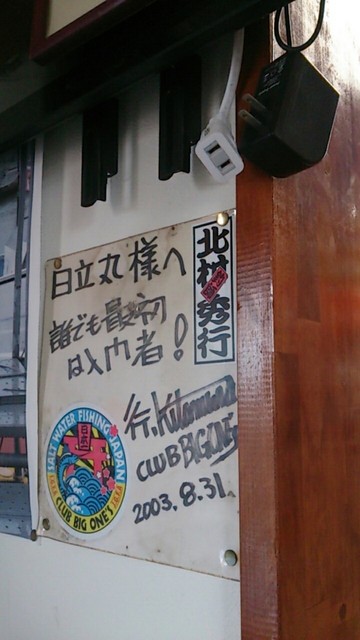 日立丸様へ
誰でも最初
は入門者!
北村秀行
行.Kitamura
CLUB BIG ONE'S
2003.8.31.
SALT WATER FISHING JAPAN
CLUB BIG ONE'S